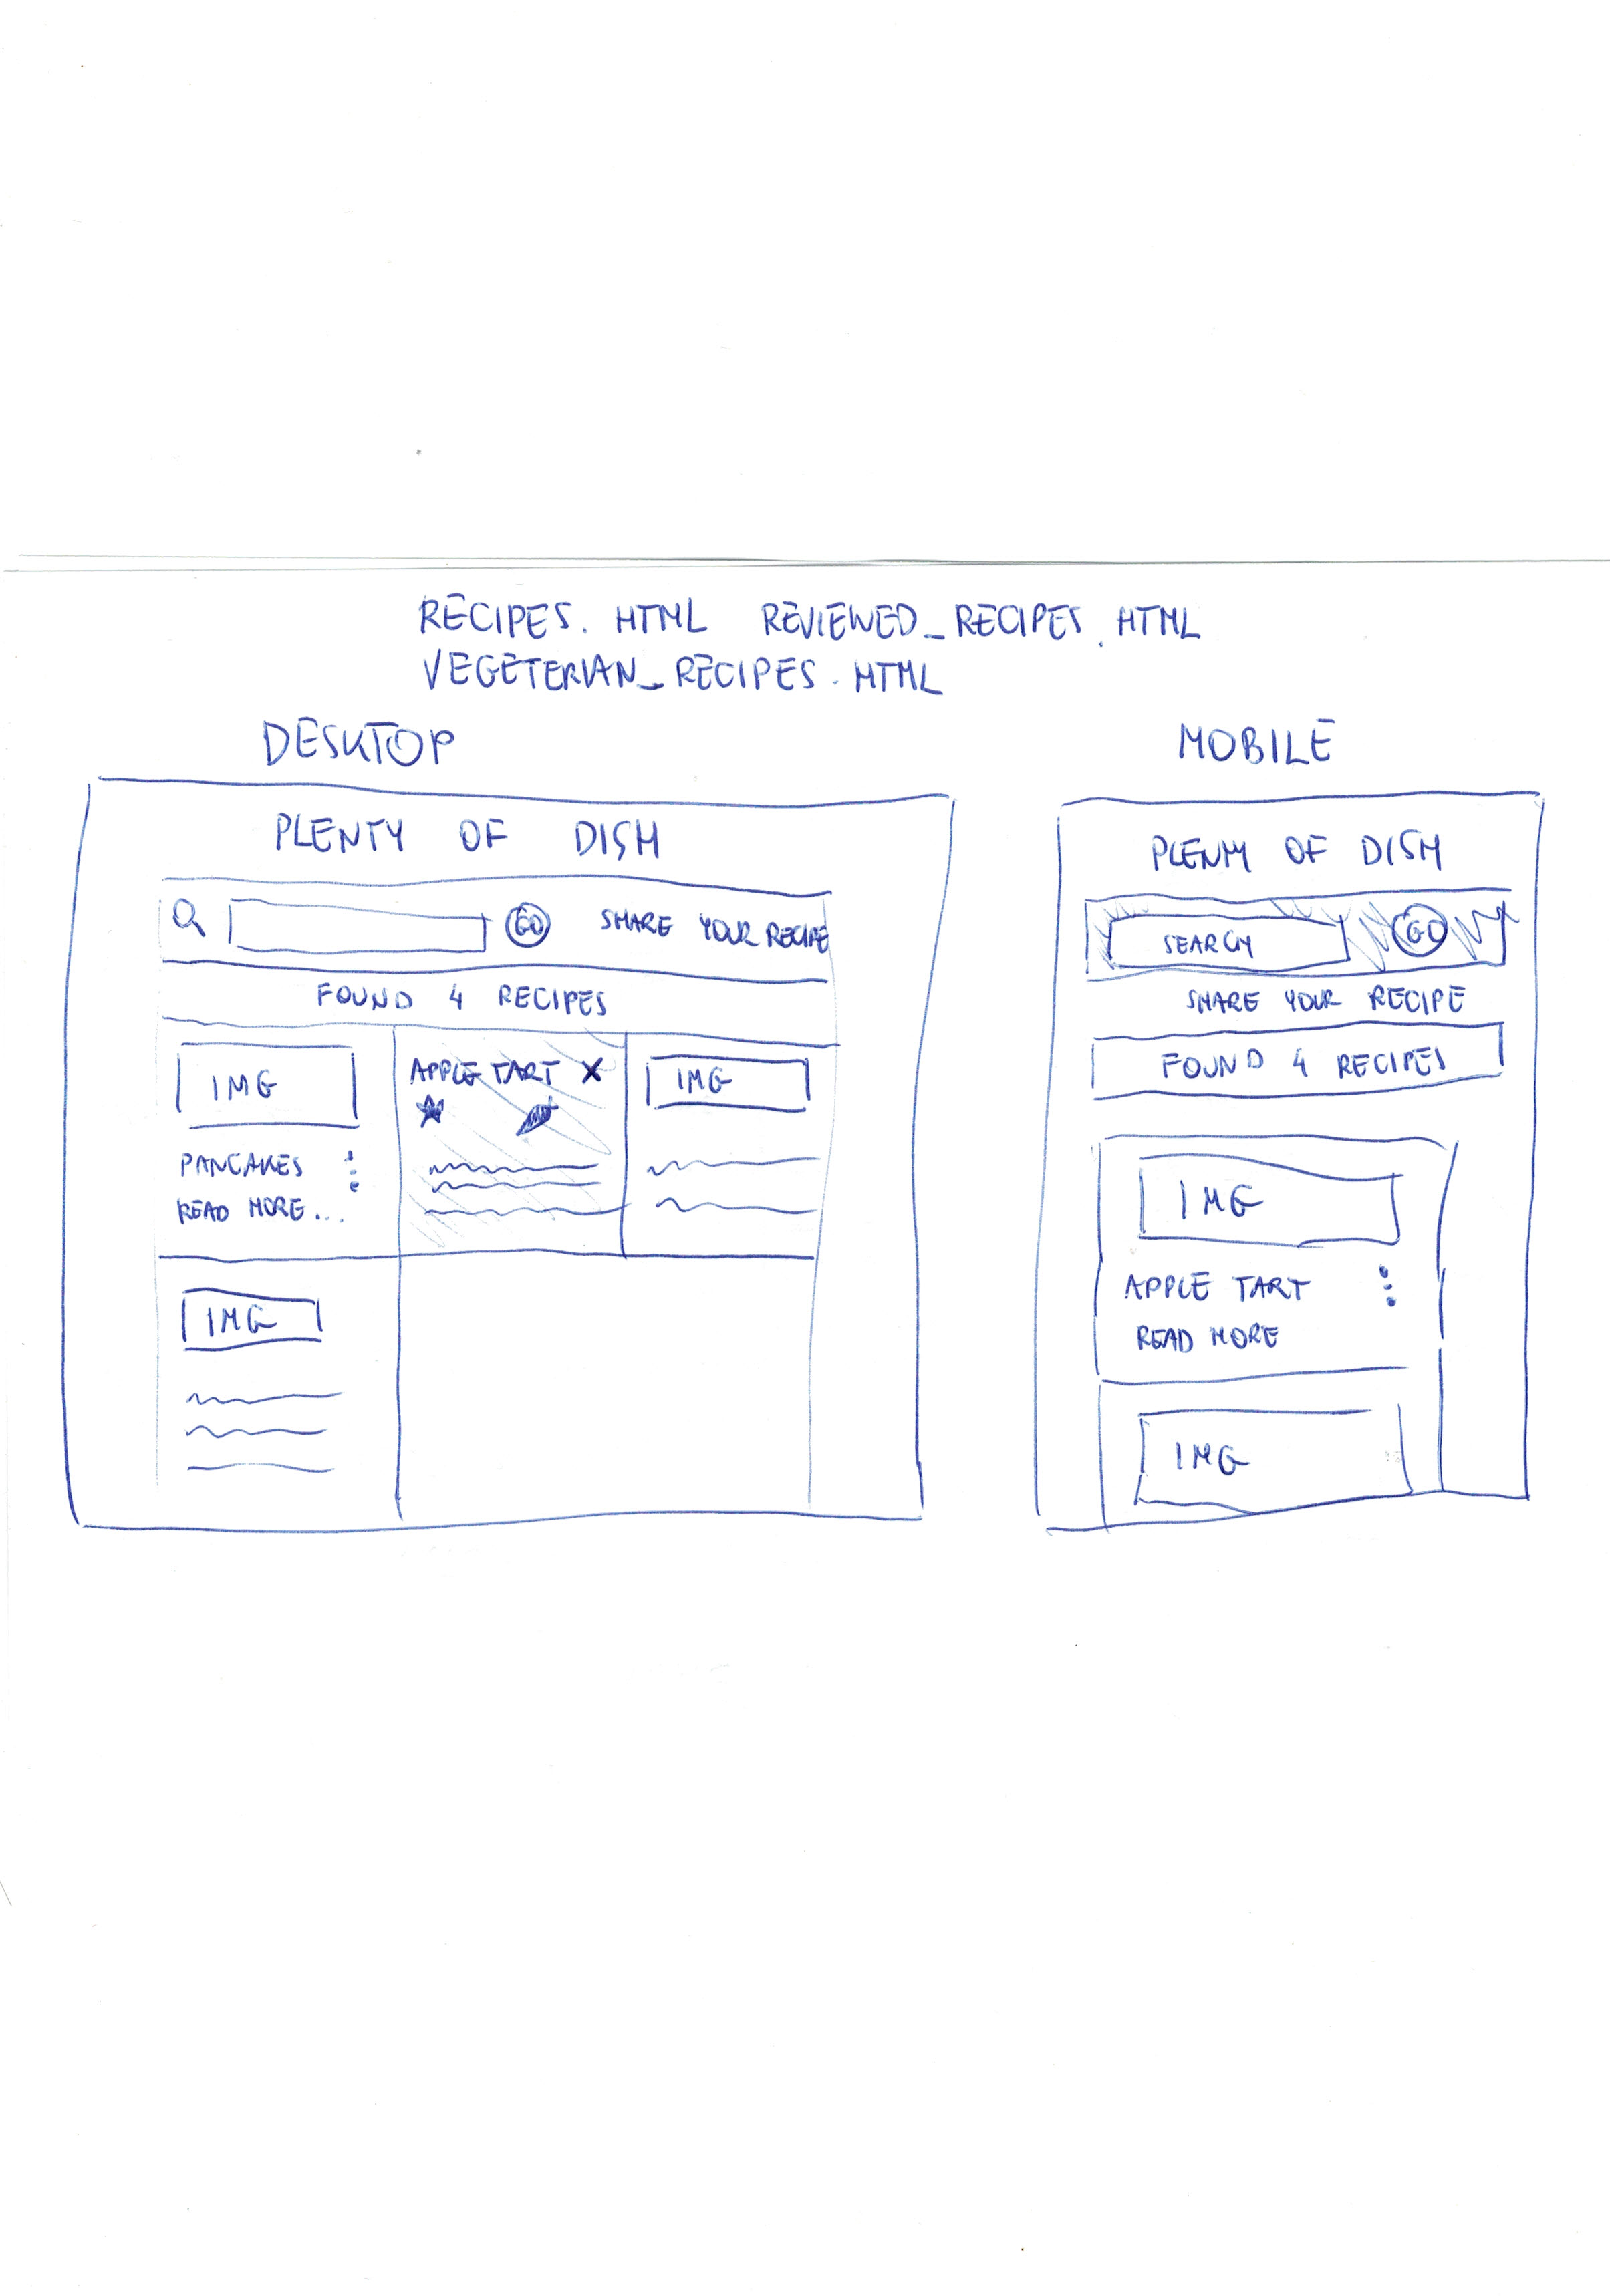 RECIPES. HTML REVIEWED_RECIPES.HTML
VEGETERIAN_RECIPES.HTML
DESKTOP
PLENTY OF DISH
GO SHARE YOUR RECIPE
FOUND 4 RECIPES
IMG
PANCAKES
READ MORE...
APPLE TART X
IMG
IMG
MOBILE
PLENTY OF DISH
SEARCH GO
SHARE YOUR RECIPE
FOUND 4 RECIPES
IMG
APPLE TART
READ MORE
IMG